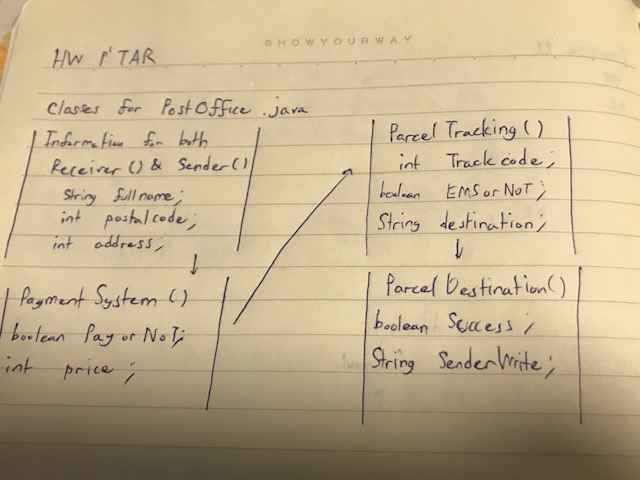 SHOWYOURWAY
HW P'TAR
Classes for PostOffice.java
Information for both
Receiver() & Sender()
String fullname;
int postalcode;
int address;
Payment System ()
boolean Pay or NoT;
int price;
Parcel Tracking()
int Trackcode;
boolean EMS or NoT;
String destination;
Parcel Destination()
boolean Success;
String SenderWrite;